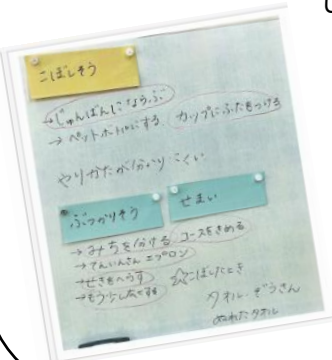 こぼしそう
→じゅんばんにならぶ
→ペットボトルにする カップにふたをつける
やりかたが分かりにくい
ぶつかりそう せまい
→みちを分ける コースをきめる
→てんいんさん エプロン
→せきをへらす
→もう少し広くする
☆こぼしたとき
タオル・ぞうきん
ぬれたタオル